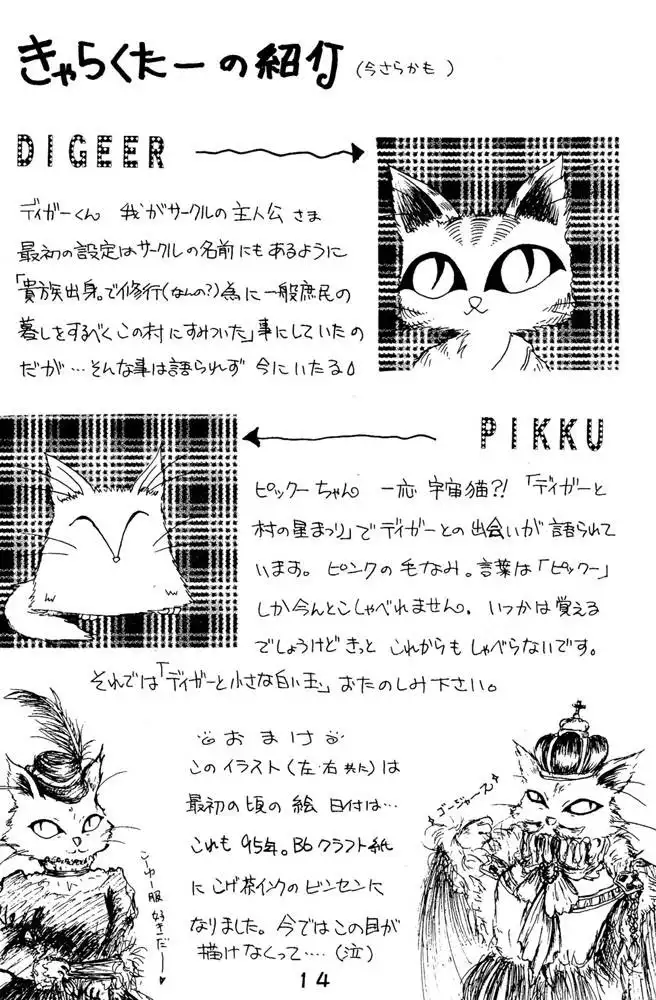 きゃらくたーの紹介 (今さらかも)
DIGEER
ディガーくん 我がサークルの主人公さま
最初の設定はサークルの名前にもあるように
「貴族出身。で修行(なんの?)為に一般庶民の
暮しをするべくこの村にすみついた」事にしていたの
だが…そんな事は語られず 今にいたる
PIKKU
ピックーちゃん 一応 宇宙猫?!「ディガーと
村の星まつり」でディガーとの出会いが語られて
います。ピンクの毛なみ。言葉は「ピックー」
しか今んとこしゃべれません。いつかは覚える
でしょうけどきっと これからもしゃべらないです。
それでは「ディガーと小さな白い玉」おたのしみ下さい。
おまけ
このイラスト(左・右共に)は
最初の頃の絵 日付は…
これも95年。B6クラフト紙
にこげ茶インクのビンセンに
なりました。今ではこの目が
描けなくって‥‥(泣)
こーゆー服好きだー
ゴージャース
14